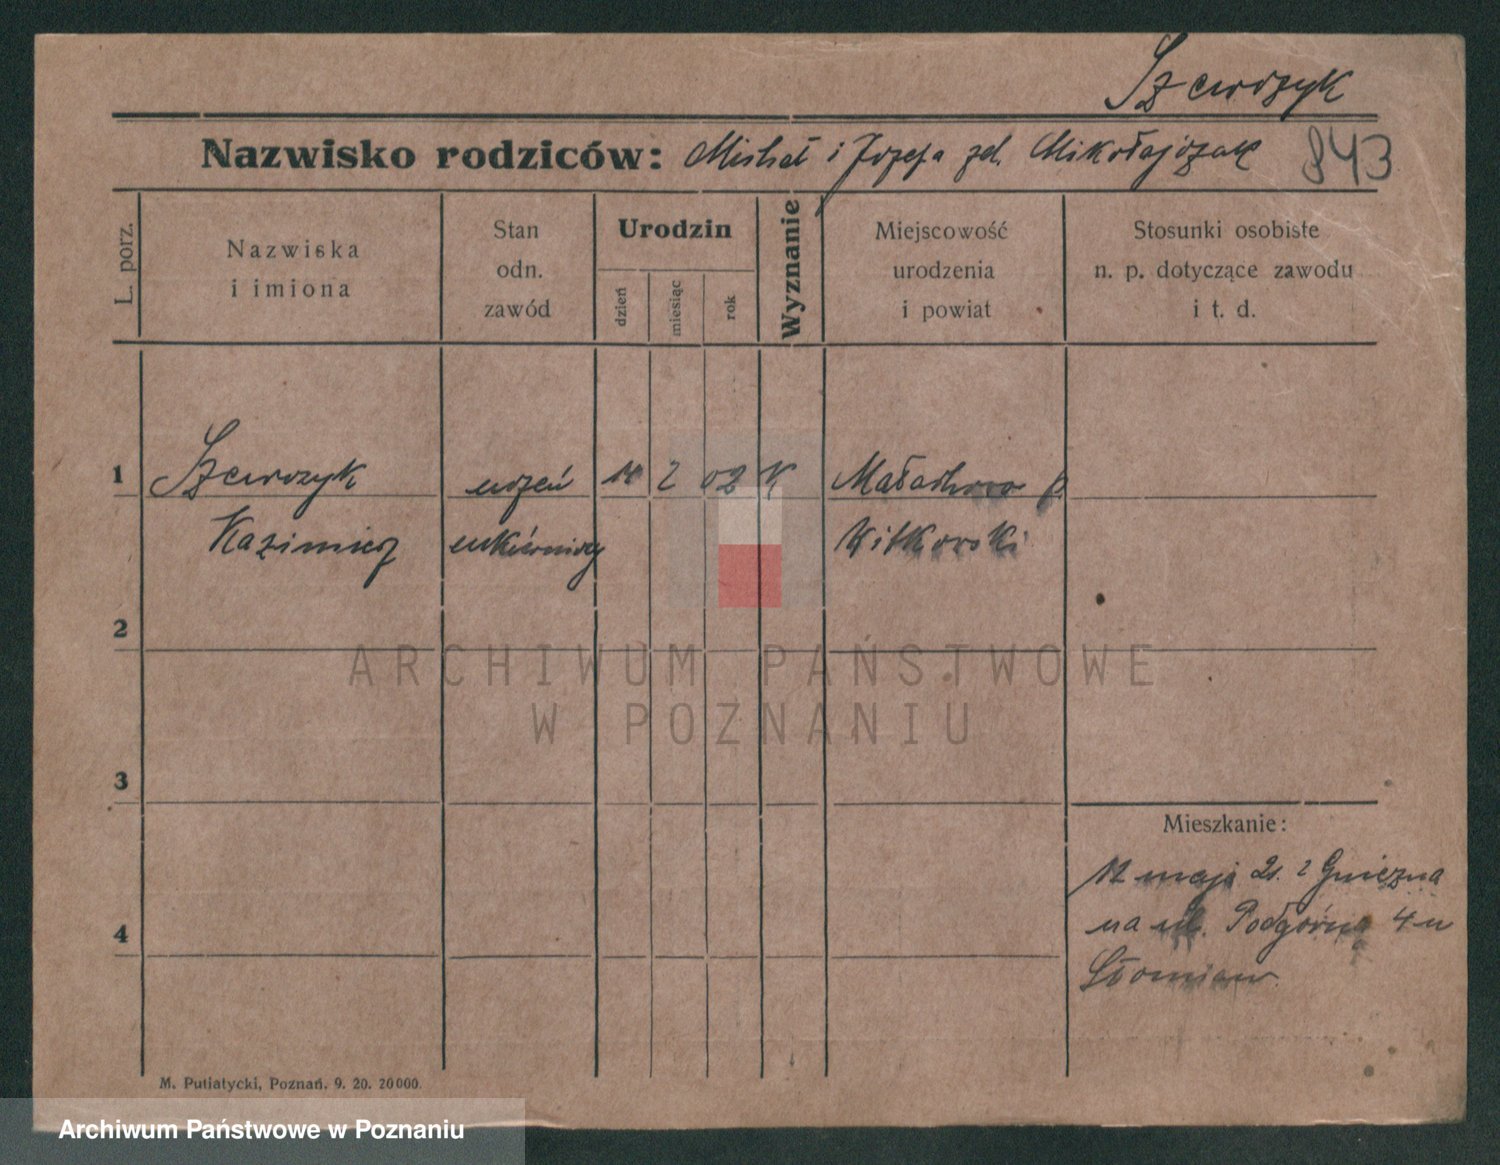 Szewczyk
Nazwisko rodziców: Michał i Józefa zd. Mikołajczak 843
L. porz.
Nazwiska
i imiona
Stan
odn.
zawód
Urodzin
dzień
miesiąc
rok
Wyznanie
Miejscowość
urodzenia
i powiat
Stosunki osobiste
n. p. dotyczące zawodu
i t. d.
1 Szewczyk uczeń 2 02 K Małachowo p.
Kazimierz cukierniczy Witkowski
2
ARCHIWUM PAŃSTWOWE
W POZNANIU
3
Mieszkanie:
12 maja 21. z Gniezna
4
na ul. Podgórna 4 u
M. Putiatycki, Poznań. 9. 20. 20000.
Archiwum Państwowe w Poznaniu